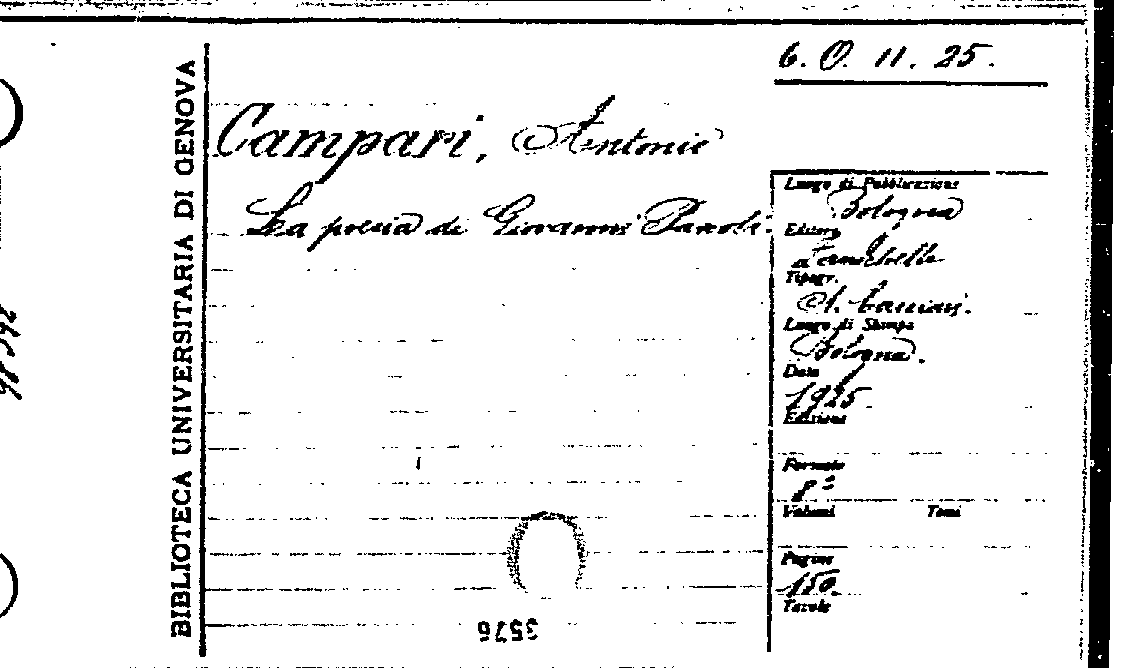 6. O. 11. 25.
BIBLIOTECA UNIVERSITARIA DI GENOVA
Campari, Antonio
La poesia di Giovanni Pascoli.
Luogo di Pubblicazione
Bologna
Editore
Zanichelli
Tipogr.
A. Cacciari.
Luogo di Stampa
Bologna.
Data
1925
Edizione
Formato
8º
Volumi Tomi
Pagine
150.
Tavole
3576